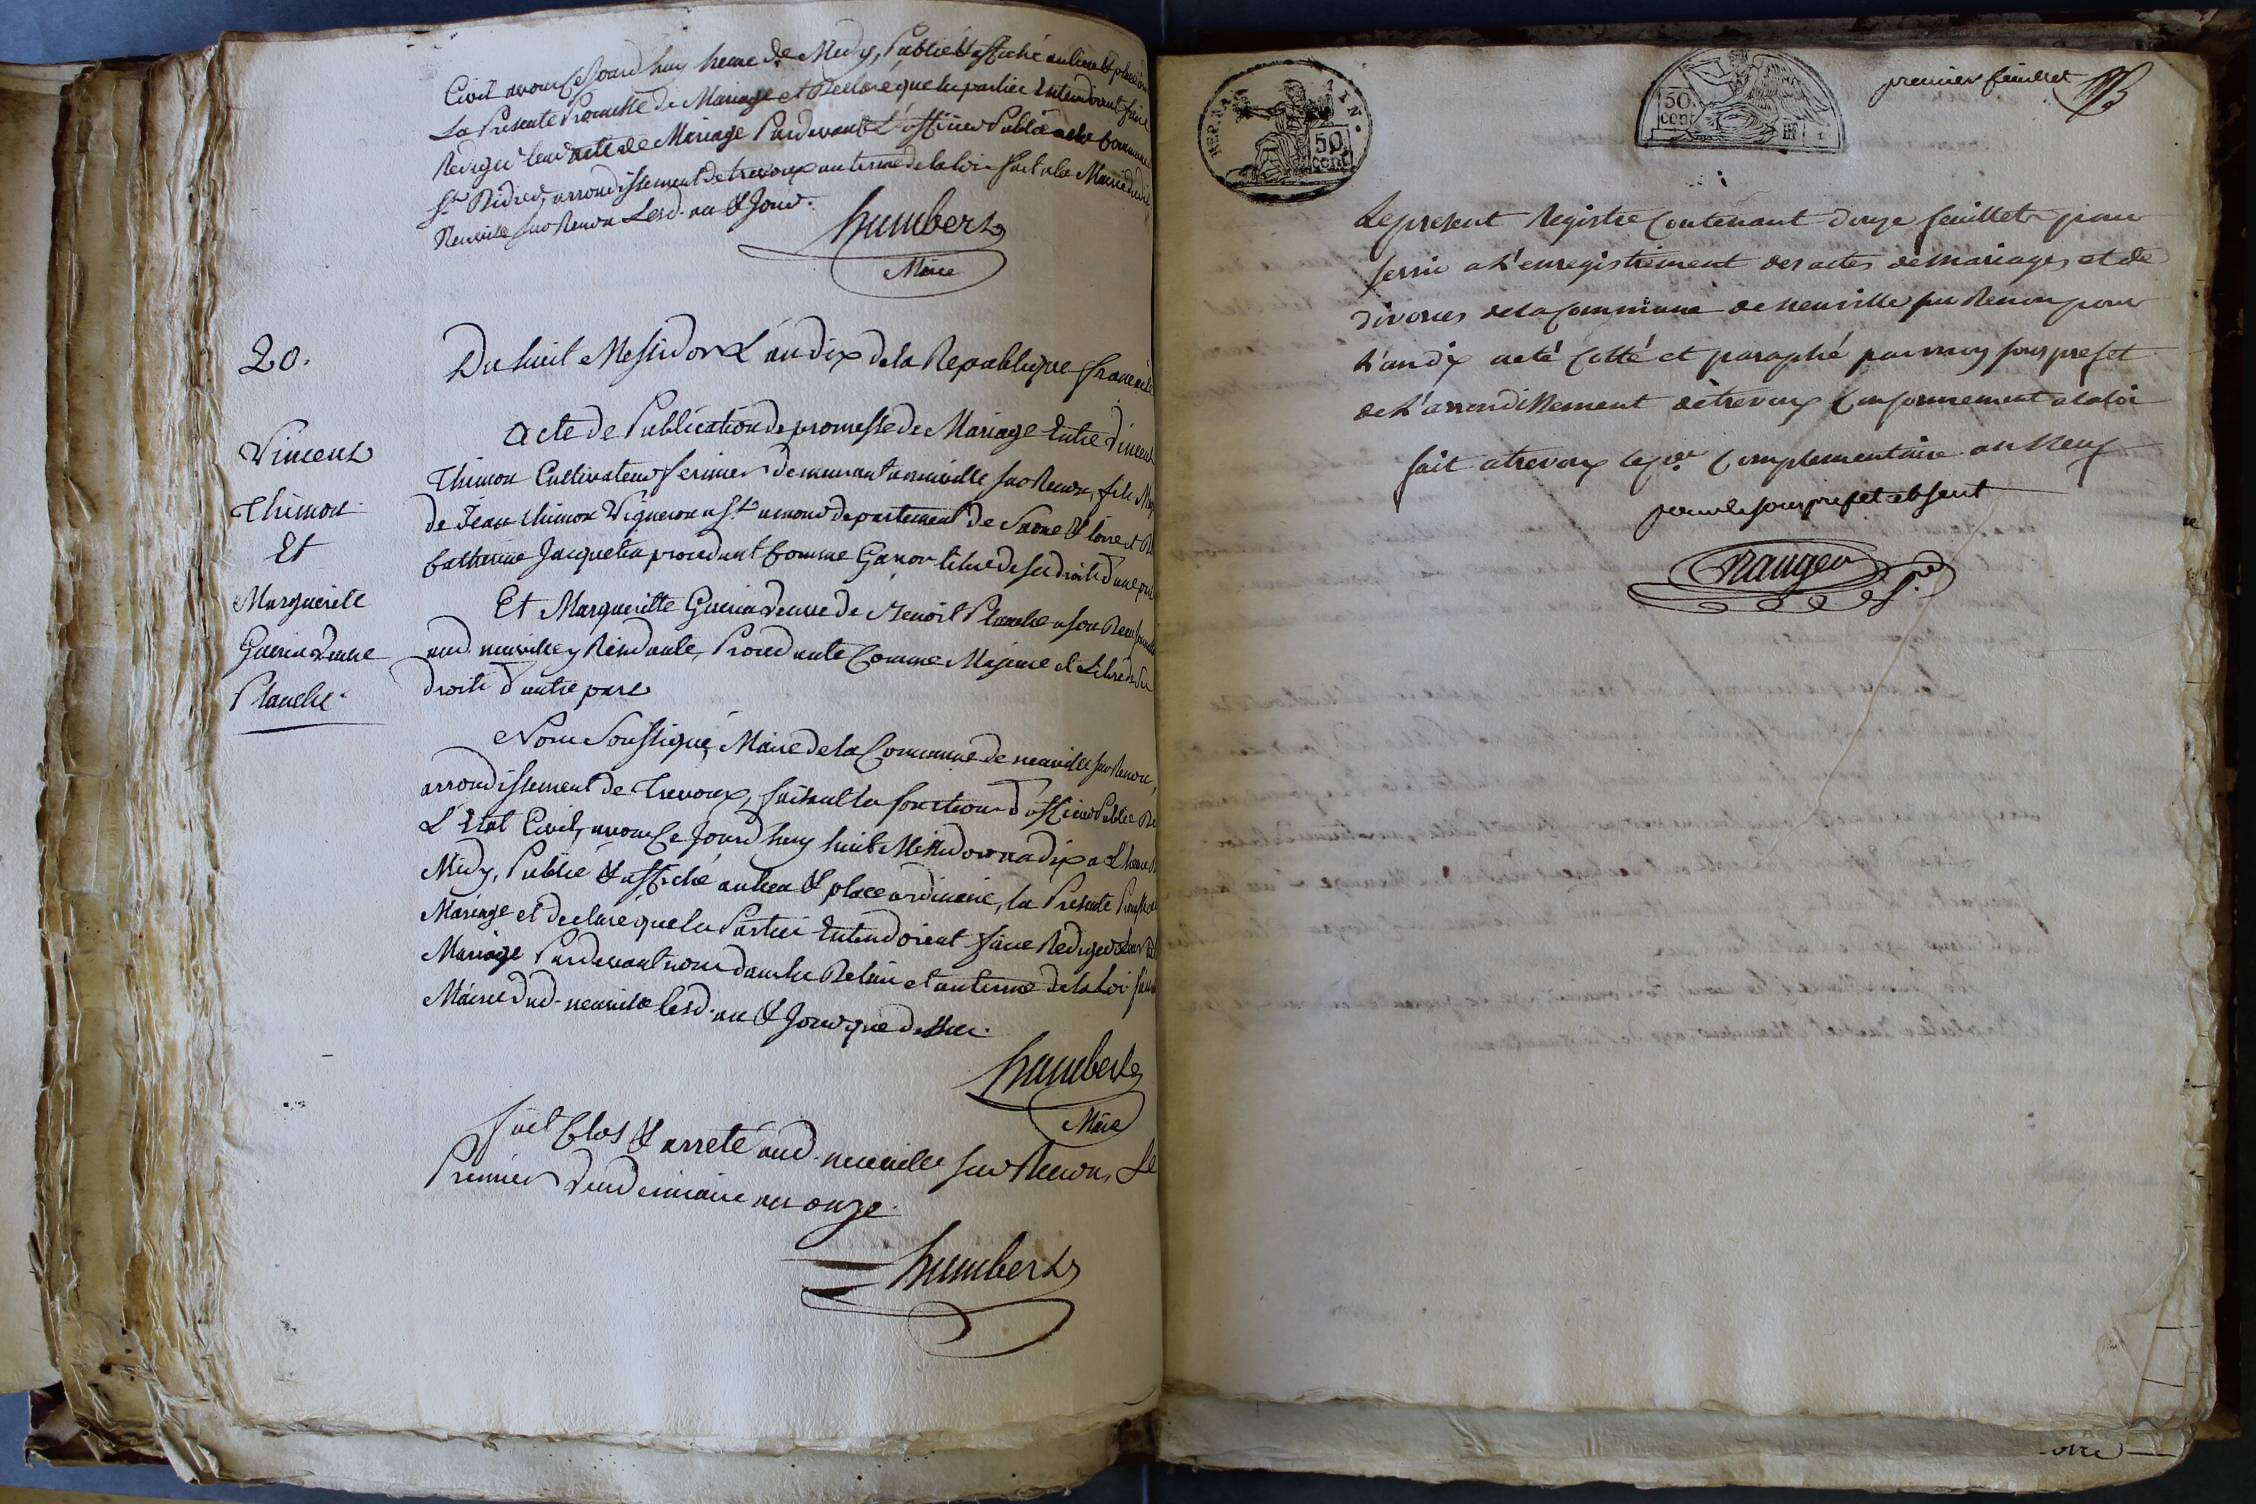 Civil avons ce Jourd'huy heure de Midy, Publié & affiché au lieu & place
La Presente Promesse de Mariage et Declaré que les parties Entendoient faire
Rediger leur acte de Mariage Pardevant L'officier Public de la Commune
St Didier, arrondissement de trevoux au terme de la loi fait a la Mairie dud.
Neuville sur Renon Lesd. an & Jour.
humbert
Maire
20.
Du huit Messidor L'an dix de la Republique francaise
Vincent
Thimon
Et
Marguerite
Guerin Veuve
Planche.
Acte de Publication de promesse de Mariage Entre Vincent
Thimon Cultivateur fermier demeurant a neuville sur Renon, fils
de Jean thimon Vigneron a St amour departement de Saone & loire et
Catherine Jacquet procedant Comme Garcon libre de ses droits d'une part
Et Margueritte Guerin Veuve de Benoit Planche
aud. neuville y Residante, Procedante Comme Majeure et Libre de ses
droits d'autre part
Nous Soussigné, Maire de la Commune de neuville sur Renon,
arrondissement de Trevoux, faisant les fonctions d'officier Public de
L'Etat Civil, avons ce Jourd'huy huit Messidor an dix a L'heure de
Midy, Publié & affiché au lieu & place ordinaire, la Presente Promesse de
Mariage et declaré que les Parties Entendoient faire Rediger Leur acte
Mariage Pardevant nous dans le Delai et au terme de la Loi fait
Mairie dud. neuville lesd. an & Jour que dessus.
humbert
Maire
fait Clos & arreté aud. neuville sur Renon, Le
Premier Vendemiaire an onze.
humbert
REP. FRA
50
cent
50.
cent
premier feuillet
Le present Registre Contenant douze feuillets pour
servir a L'enregistrement des actes de mariages et de
divorces de la Commune de neuville sur Renon pour
L'an dix a eté Cotté et paraphé par nous sous prefet
de L'arrondissement de trevoux Conformement a la loi
fait a trevoux le Complementaire an Neuf
pour le sous prefet absent